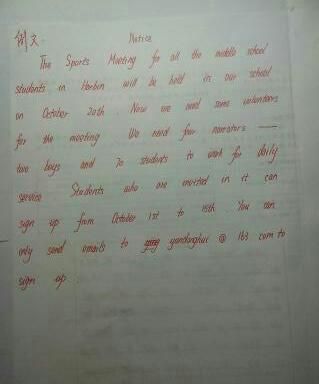 例文:
Notice
The Sports Meeting for all the middle school
students in Harbin will be held in our school
on October 20th. Now we need some volunteers
for the meeting. We need four narrators —
two boys and 70 students to work for daily
service. Students who are invited in it can
sign up from October 1st to 15th. You can
only send emails to yandonghui @ 163 com to
sign up